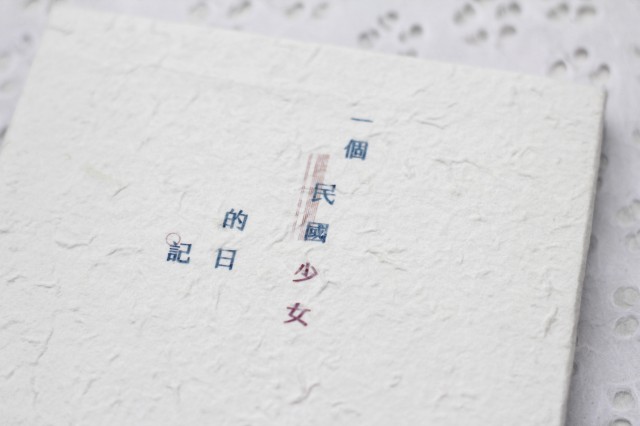 一個
民國
少女
的日
記